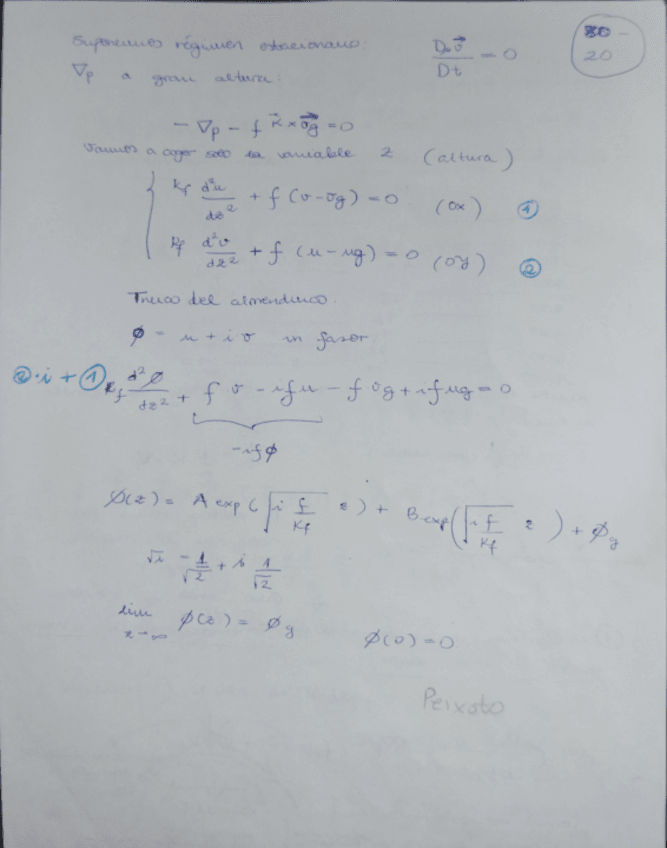 Suponemos régimen estacionario: D₀v⃗/Dt = 0
80 -
20
∇p a gran altura:
- ∇p - f k⃗ × v⃗g = 0
Vamos a coger solo la variable z (altura)
kf d²u/dz² + f (v - vg) = 0 (Ox) ①
kf d²v/dz² + f (u - ug) = 0 (Oy) ②
Truco del almendruco.
ϕ = u + i v un fasor
②·i + ① kf d²ϕ/dz² + f v - i f u - f vg + i f ug = 0
- i f ϕ
ϕ(z) = A exp(√(i f/kf) z) + B exp(√(i f/kf) z) + ϕg
√i = 1/√2 + i 1/√2
lim z→∞ ϕ(z) = ϕg ϕ(0) = 0
Peixoto